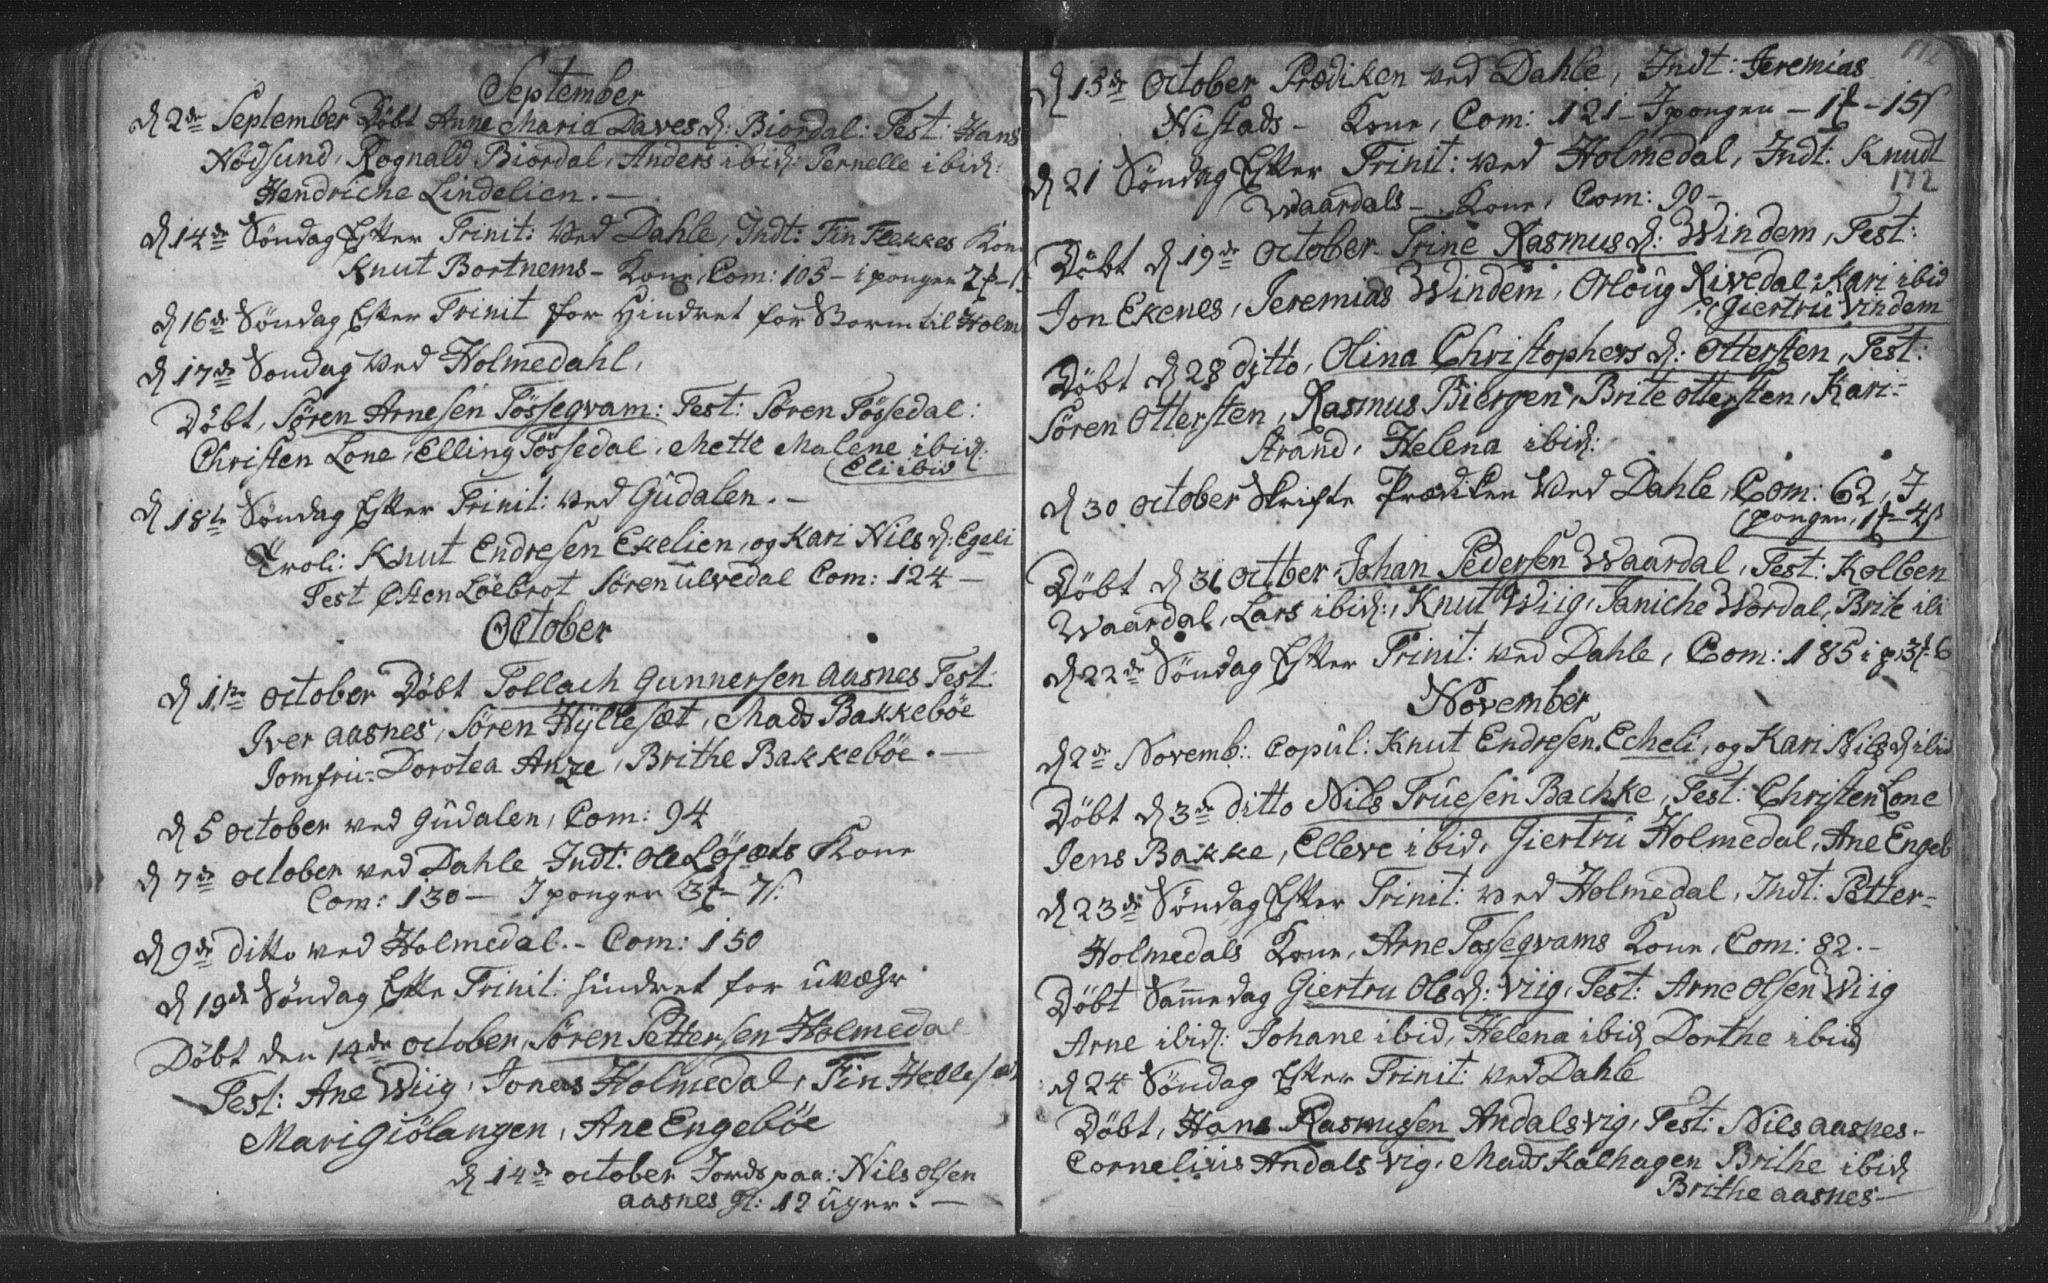 September
d 2de September Døbt Anne Maria Daves d: Biordal: Test: Hans
Nødsund, Rognald Biordal, Anders ibid: Pernelle ibid:
Hendriche Lindelien. —
d 14de Søndag Efter Trinit: ved Dahle, Indt: Fin Flekkes Kone
Knut Bortnems – Kone, Com: 105 – i pongen 2
d 16de Søndag Efter Trinit for Hindret for Storm til Holm
d 17de Søndag ved Holmedahl,
Døbt, Søren Arnesen Fössegvam: Test: Søren Fössedal:
Christen Lone, Elling Fössedal, Mette Malene ibid:
Eli ibid
d 18de Søndag Efter Trinit: ved Gudalen. –
Trol: Knut Endresen Ekelien, og Kari Nils d: Egeli
Test Østen Löebrot Søren Ulvedal Com: 124 —
October
d 1te October Døbt Tollach Gunnersen Aasnes Test
Iver Aasnes, Søren Hyllesæt, Mads Bakkebøe
Jomfru: Dorotea Anze, Brithe Bakkebøe. —
d 5 October ved Gudalen, Com: 94
d 7de October ved Dahle Indt: Ole Løsæts Kone
Com: 130 — I pongen 3 – 7
d 9de ditto ved Holmedal. – Com: 150
d 19de Søndag Efte Trinit: hindret for uvæhr
Døbt den 14de October, Søren Pettersen Holmedal
Test: Ane Wiig, Jonas Holmedal, Fin Hellesæt
Mari Giölangen, Ane Engebøe
d 14de October Jordspaa: Nils Olsen
Aasnes gl: 12 uger. —
d 15de October Prædiken ved Dahle, Indt: Jeremias
Nistads – Kone, Com: 121 – I pongen – 1 – 15
172
d 21 Søndag Efter Trinit: ved Holmedal, Indt: Knudt
Waardals – Kone, Com: 90 –
Døbt d 19de October Trine Rasmus d: Windem, Test:
Jon Ekenes, Jeremias Windem, Oloug Rivedal, Kari ibid
Giertru Vindem
Døbt d 28 ditto, Olina Christophers d: Ottersten, Test:
Søren Ottersten, Rasmus Biergen, Brite Ottersten, Kari –
Strand, Helena ibid:
d 30 October Skrifte Prædiken ved Dahle, Com: 62, I
pongen, 1 – 4
Døbt d 31 Octber Johan Pedersen Waardal, Test: Kolben
Waardal, Lars ibid:, Knut Wiig, Janiche Wordal, Brite ibi
d 22de Søndag Efter Trinit: ved Dahle, Com: 185 i p: 3 6
November
d 2de Novemb: Copul: Knut Endresen Echeli, og Kari Nils d ibid
Døbt d 3de ditto Nils Truesen Bachke, Test: Christen Lone
Jens Bakke, Elleve ibid, Giertru Holmedal, Ane Engeb
d 23de Søndag Efter Trinit: ved Holmedal, Indt: Petter –
Holmedals Kone, Arne Fossegvams Kone, Com: 82. –
Døbt Samedag Giertru Ols d: Viig, Test: Arne Olsen Wiig
Arne ibid: Johane ibid, Helena ibid Dorthe ibid
d 24 Søndag Efter Trinit: ved Dahle
Døbt, Hans Rasmusen Andalsvig, Test: Nils Aasnes.
Cornelius Andalsvig, Mads Kalhagen Brithe ibid
Brithe Aasnes —